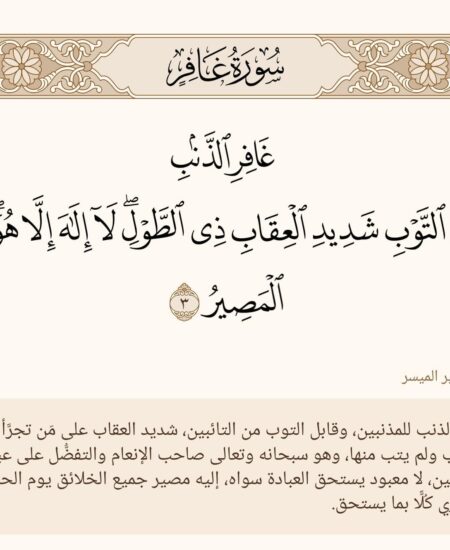 سُورَةُ غَافِرٍ
غَافِرِ ٱلذَّنۢبِ
ٱلتَّوۡبِ شَدِيدِ ٱلۡعِقَابِ ذِي ٱلطَّوۡلِۖ لَآ إِلَٰهَ إِلَّا هُوَۖ
ٱلۡمَصِيرُ ٣
الميسر
للمذنبين، وقابل التوب من التائبين، شديد العقاب على مَن تجرَّأ
ولم يتب منها، وهو سبحانه وتعالى صاحب الإنعام والتفضُّل على
لا معبود يستحق العبادة سواه، إليه مصير جميع الخلائق يوم
كلًّا بما يستحق.